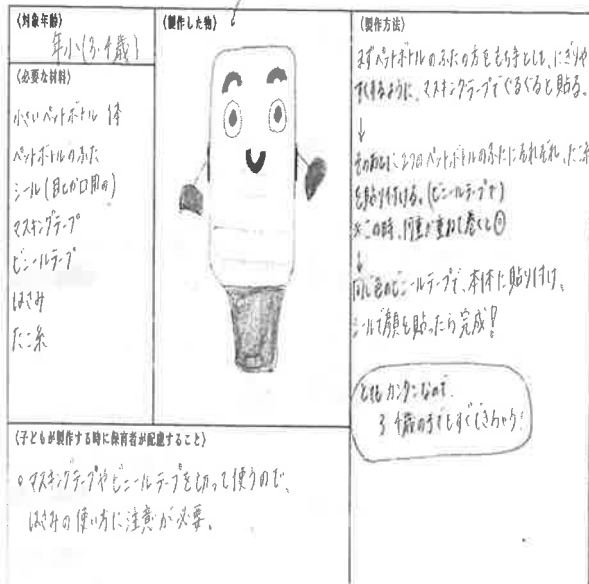 〈対象年齢〉
年小(3.4歳)
〈必要な材料〉
小さいペットボトル 1本
ペットボトルのふた
シール(目とか口用の)
マスキングテープ
ビニールテープ
はさみ
たこ糸
〈製作した物〉
〈製作方法〉
まずペットボトルのふたの方をもち手とし、にぎりや
すくするように、マスキングテープでぐるぐると貼る。
↓
その次に、2つのペットボトルのふたにそれぞれ、たこ糸
を貼り付ける。(ビニールテープで)
※この時、何重か重ねて巻くと
↓
同じ色のビニールテープで、本体に貼り付け、
シールで顔を貼ったら完成!
とてもカンタンなので、
3.4歳の子でもすぐできちゃう!
〈子どもが製作する時に保育者が配慮すること〉
○マスキングテープやビニールテープを切って使うので、
はさみの使い方に注意が必要。